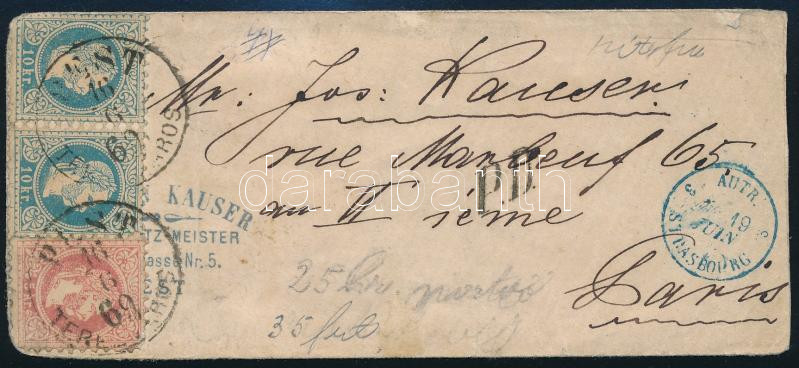 10 KR.
10 KR.
PEST
16
6
69
PEST
16
6
69
Mr: Jos: Kauser
rue Marbeuf 65,
au II ième
Paris
P.D.
KAUSER
TZ-MEISTER
asse Nr. 5.
EST
3 AUTR. 3
19
JUIN
STRASBOURG
25 kr.
35
darabanth